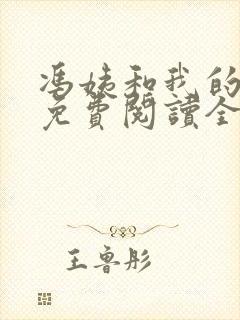 馮姨和我的
免費閱讀全
王魯彤